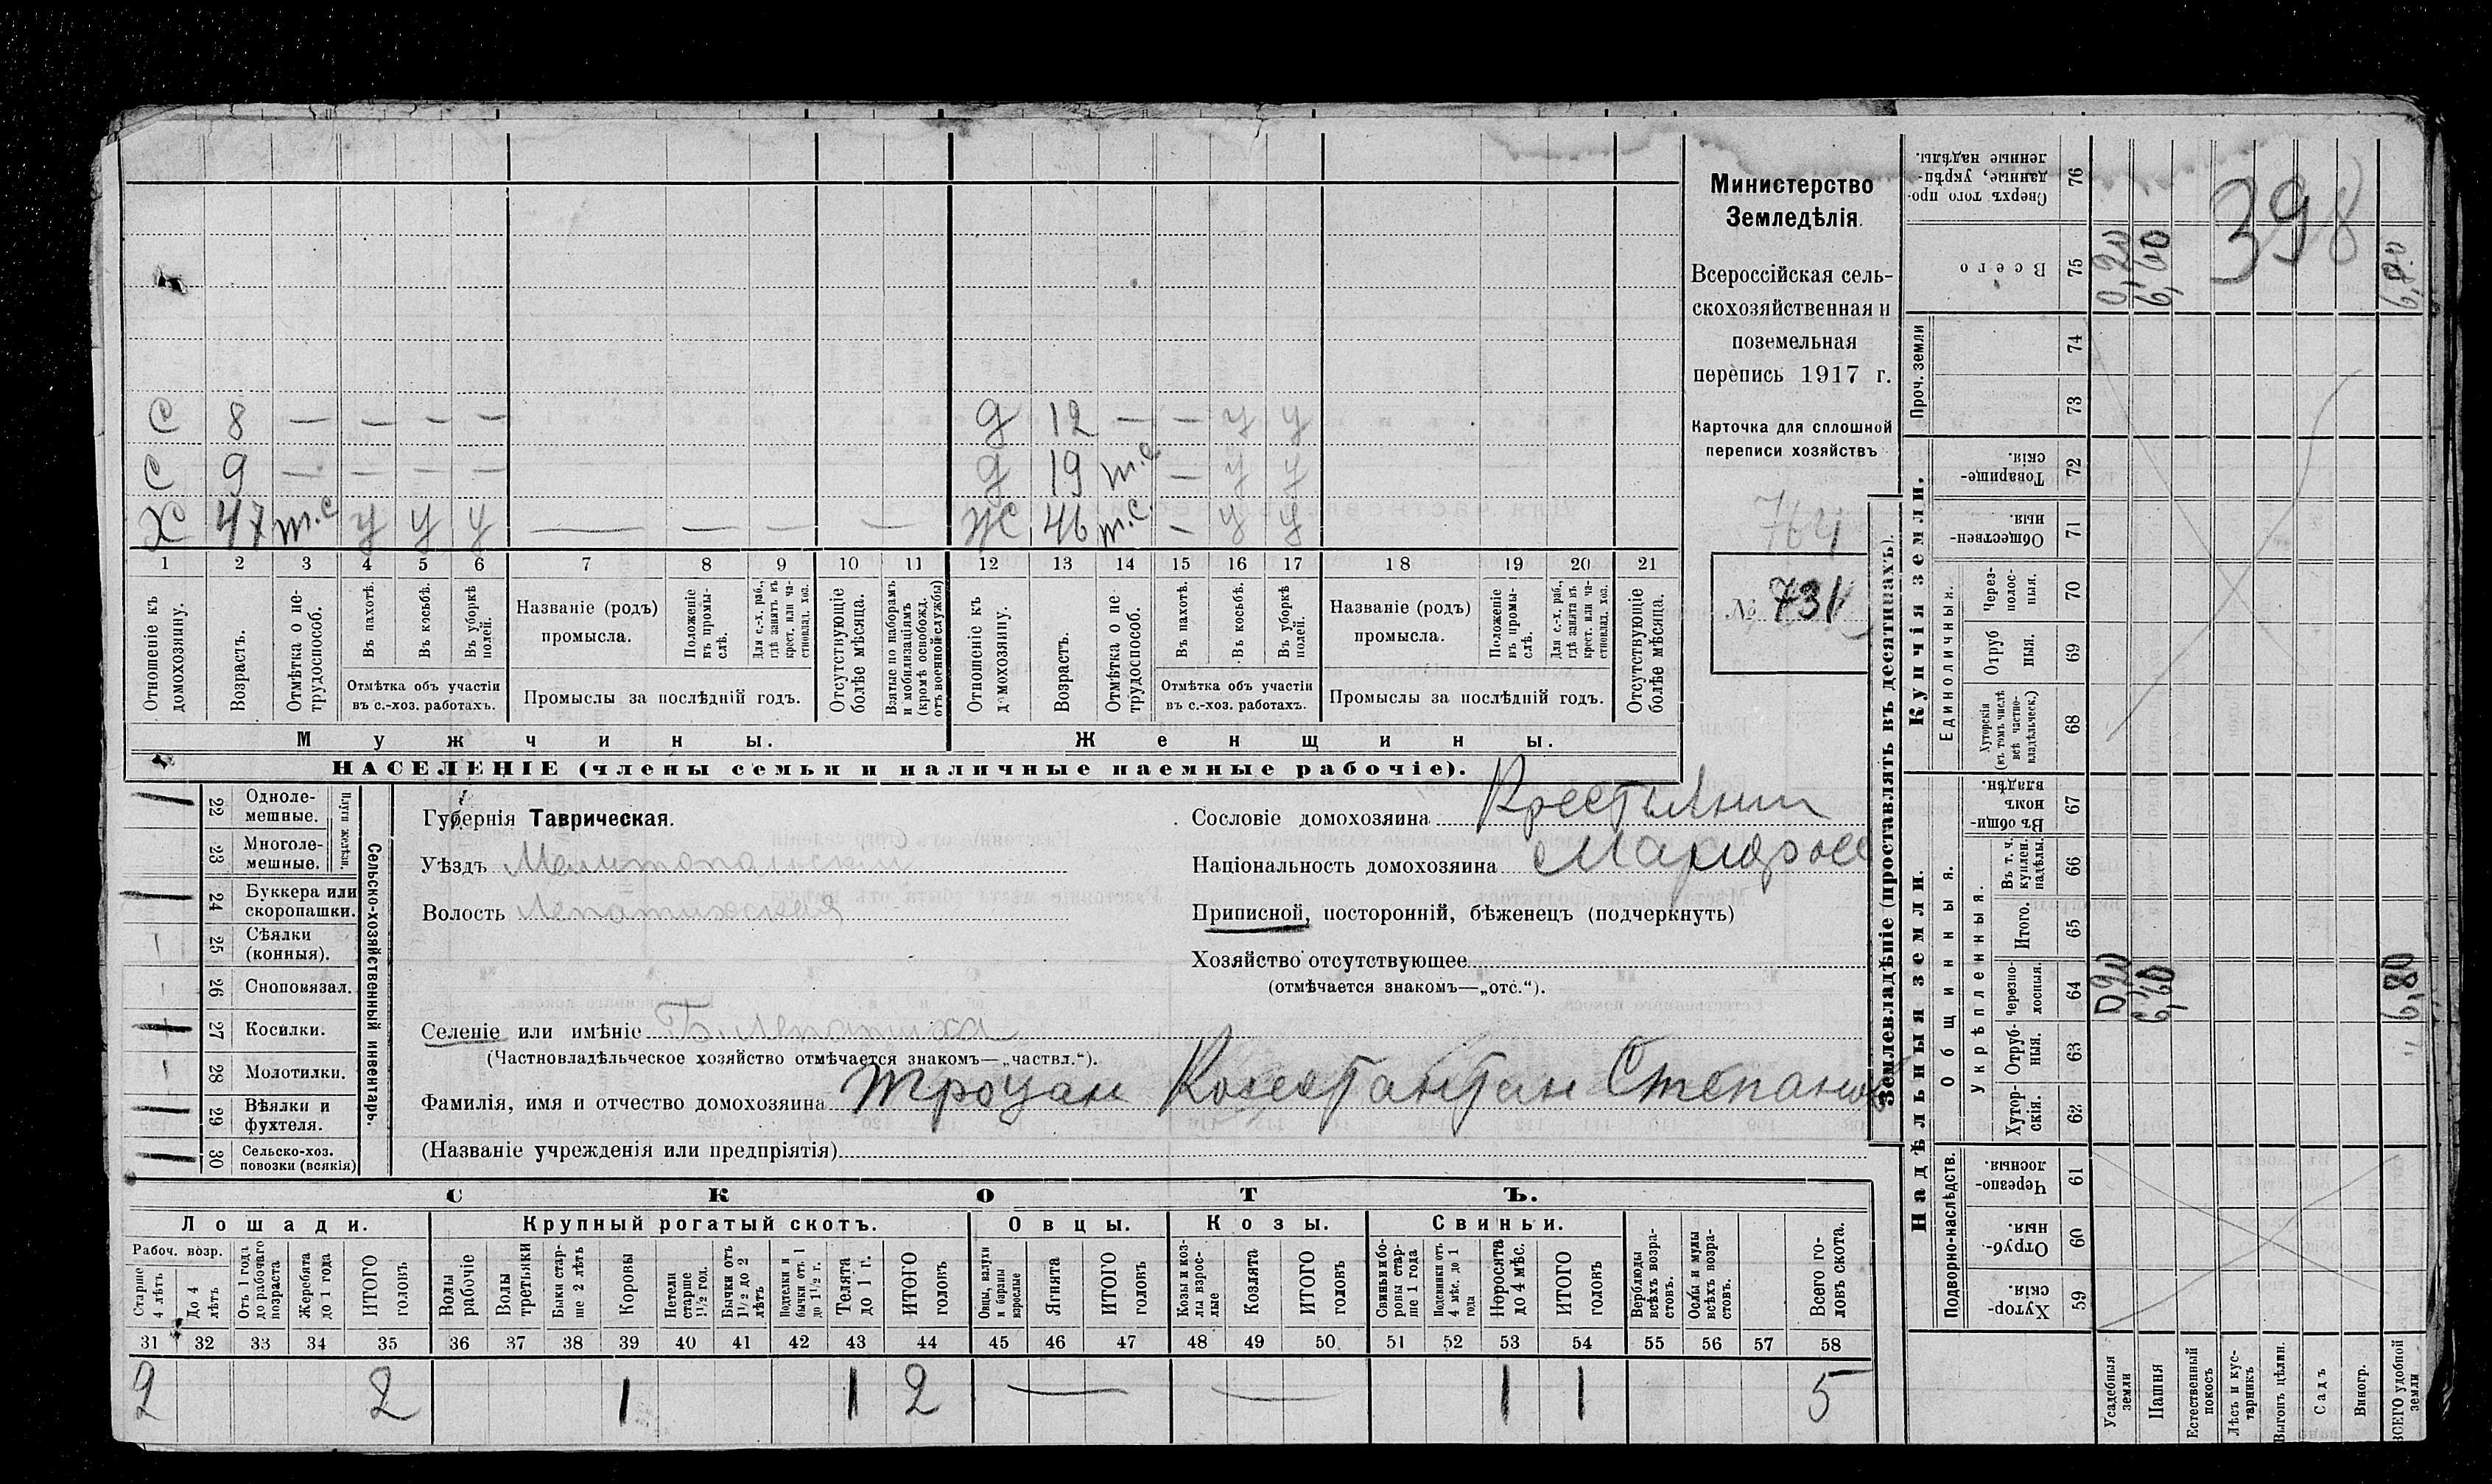 С 8 — — — — д 12 — — у у
С 9 — — — — д 19 т.с — у у
Х 47 т.с у у у — — — — Ж 46 т.с. — у у
1 2 3 4 5 6 7 8 9 10 11 12 13 14 15 16 17 18 19 20 21
Отношеніе къ домохозяину.
Возрастъ.
Отмѣтка о не-
трудоспособ.
Въ пахотѣ.
Въ косьбѣ.
Въ уборкѣ полей.
Отмѣтка объ участіи
въ с.-хоз. работахъ.
Названіе (родъ)
промысла.
Положеніе въ промы-
слѣ.
Для с.-х. раб.,
гдѣ занятъ въ
крест. или ча-
стновлад. хоз.
Промыслы за послѣдній годъ.
Отсутствующіе
болѣе мѣсяца.
Взятые по наборамъ
и мобилизаціямъ
(кромѣ освобожд.
отъ военной службы)
Отношеніе къ
домохозяину.
Возрастъ.
Отмѣтка о не
трудоспособ.
Въ пахотѣ.
Въ косьбѣ.
Въ уборкѣ
полей.
Отмѣтка объ участіи
въ с.-хоз. работахъ.
Названіе (родъ)
промысла.
Положеніе
въ промы-
слѣ.
Для с.-х. раб.,
гдѣ занята въ
крест. или ча-
стновлад. хоз.
Промыслы за послѣдній годъ.
Отсутствующіе
болѣе мѣсяца.
Мужчины.
Женщины.
НАСЕЛЕНІЕ (члены семьи и наличные наемные рабочіе).
Министерство
Земледѣлія.
Всероссійская сель-
скохозяйственная и
поземельная
перепись 1917 г.
Карточка для сплошной
переписи хозяйствъ
764
№ 731
22 Одноле-
мешные.
23 Многоле-
мешные.
Плуги желѣзн.
24 Буккера или
скоропашки.
25 Сѣялки
(конныя).
26 Сноповязал.
27 Косилки.
28 Молотилки.
29 Вѣялки и
фухтеля.
30 Сельско-хоз.
повозки (всякія)
Сельско-хозяйственный инвентарь.
Губернія Таврическая.
Уѣздъ Мелитопольский
Волость Лепатихская
Селеніе или имѣніе Б. Лепатиха
(Частновладѣльческое хозяйство отмѣчается знакомъ—„частвл.“).
Фамилія, имя и отчество домохозяина Троцан Константин Степанов
(Названіе учрежденія или предпріятія)
Сословіе домохозяина Крестьянин
Національность домохозяина Малоросс
Приписной, посторонній, бѣженецъ (подчеркнуть)
Хозяйство отсутствующее
(отмѣчается знакомъ—„отс.“).
СКОТЪ.
Лошади. Крупный рогатый скотъ. Овцы. Козы. Свиньи.
Рабоч. возр.
Старше
4 лѣтъ
До 4
лѣтъ
Отъ 1 года
до рабочаго
возраста
Жеребята
до 1 года
ИТОГО
головъ
Волы
рабочіе
Волы
третьяки
Быки стар-
ше 2 лѣтъ
Коровы
Нетели
старше
1½ год.
Бычки отъ
1½ до 2
лѣтъ
Подтелки и
бычки отъ 1
до 1½ г.
Телята
до 1 г.
ИТОГО
головъ
Овцы, валухи
и бараны
взрослые
Ягнята
ИТОГО
головъ
Козы и коз-
лы взрос-
лые
Козлята
ИТОГО
головъ
Свиньи и бо-
ровы стар-
ше 1 года
Подсвинки отъ
4 мѣс. до 1
года
Поросята
до 4 мѣс.
ИТОГО
головъ
Верблюды
всѣхъ возра-
стовъ.
Ослы и мулы
всѣхъ возра-
стовъ.
Всего го-
ловъ скота.
31 32 33 34 35 36 37 38 39 40 41 42 43 44 45 46 47 48 49 50 51 52 53 54 55 56 57 58
2 2 1 1 2 — — 1 1 5
Землевладѣніе (проставлять въ десятинахъ).
Надѣльныя земли.
Купчія земли.
Проч. земли
Подворно-наслѣдств.
Общинныя.
Укрѣпленныя.
Единоличныя.
Сверхъ того про-
данные, укрѣп-
ленные надѣлы. 76
Всего 75
74
73
Товарище-
скія. 72
Обществен-
ныя. 71
Через-
полос-
ныя. 70
Отруб
ныя. 69
Хуторскія
(въ томъ числѣ
всѣ частно-
владѣльческ.) 68
Въ общин-
номъ
владѣн. 67
Въ т. ч.
куплен.
надѣлы. 66
Итого. 65
Черезпо-
лосныя. 64
Отруб-
ныя. 63
Хутор-
скія. 62
Черезпо-
лосныя 61
Отруб-
ныя. 60
Хутор-
скія. 59
0,20
6,60
398
6,80
0,20
6,60
6,80
Усадебныя
земли
Пашня
Естественный
покосъ
Лѣсъ и кус-
тарникъ
Выгонъ цѣлин.
Садъ
Виногр.
ВСЕГО удобной
земли